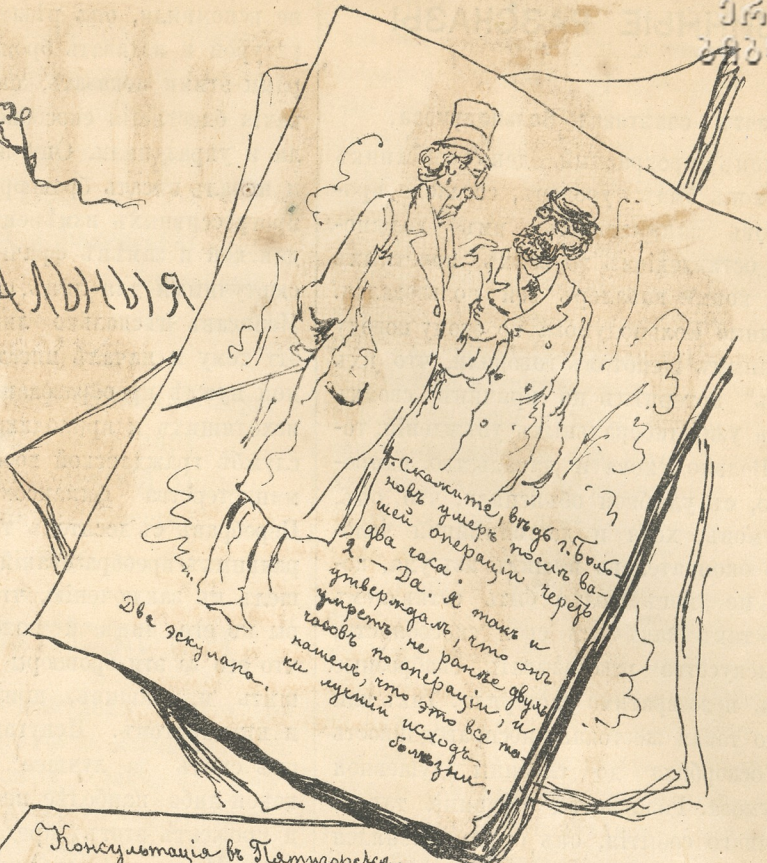 АЛЬНЫЯ
1. Скажите, вѣдь г. Боль-
новъ умеръ послѣ ва-
шей операціи черезъ
два часа?
2. — Да. Я такъ и
утверждалъ, что онъ
умретъ не ранѣе двухъ
часовъ по операціи, и
нашелъ, что это все та-
ки лучшій исходъ
болѣзни.
Два эскулапа.
Консультація въ Пятигорскѣ